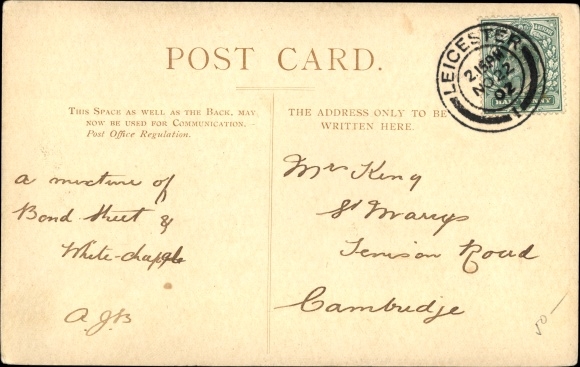 POST CARD.
THIS SPACE AS WELL AS THE BACK, MAY
NOW BE USED FOR COMMUNICATION.—
Post Office Regulation.
THE ADDRESS ONLY TO BE
WRITTEN HERE.
LEICESTER
2.15PM
NO 22
02
HALF PENNY
a mixture of
Bond Street &
White-chaple
A.J.B
Mrs King
St Marys
Tenison Road
Cambridge
50